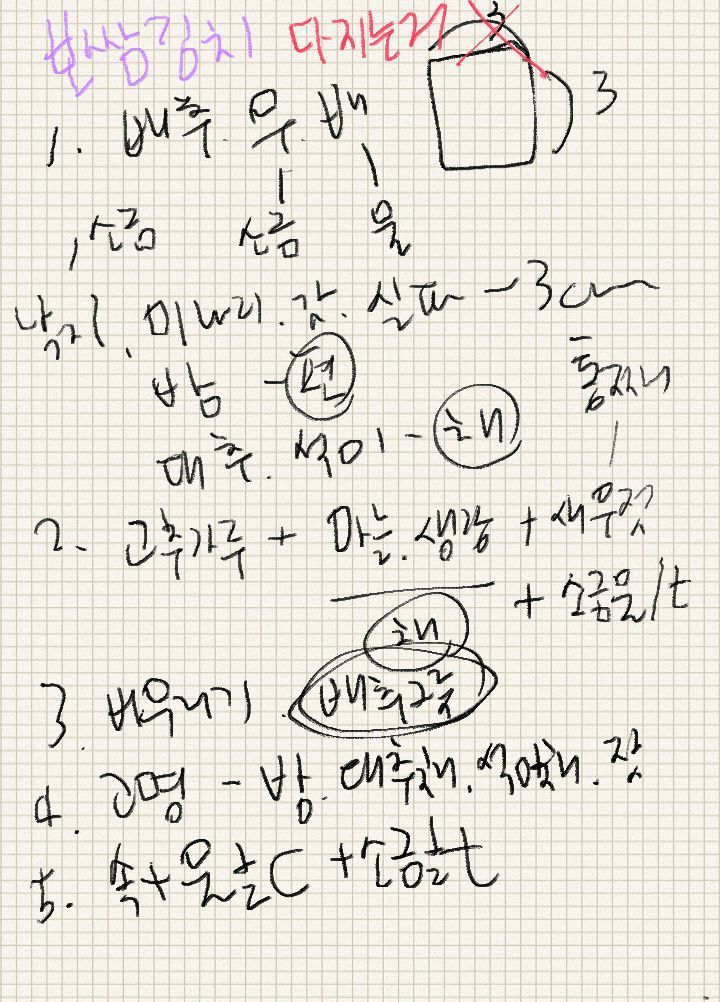 보쌈김치 다지는거 3
1. 배추. 무. 배 3
소금 소금 물
낙지. 미나리. 갓. 실파 - 3cm
밤 - 편
대추. 석이 - 채
2. 고추가루 + 마늘. 생강 + 새우젓
+ 소금물 1t
채
3. 버무리기 배추 3줄
4. 고명 - 밤. 대추채. 석이채. 잣
5. 속 + 물 ½C + 소금 ½t